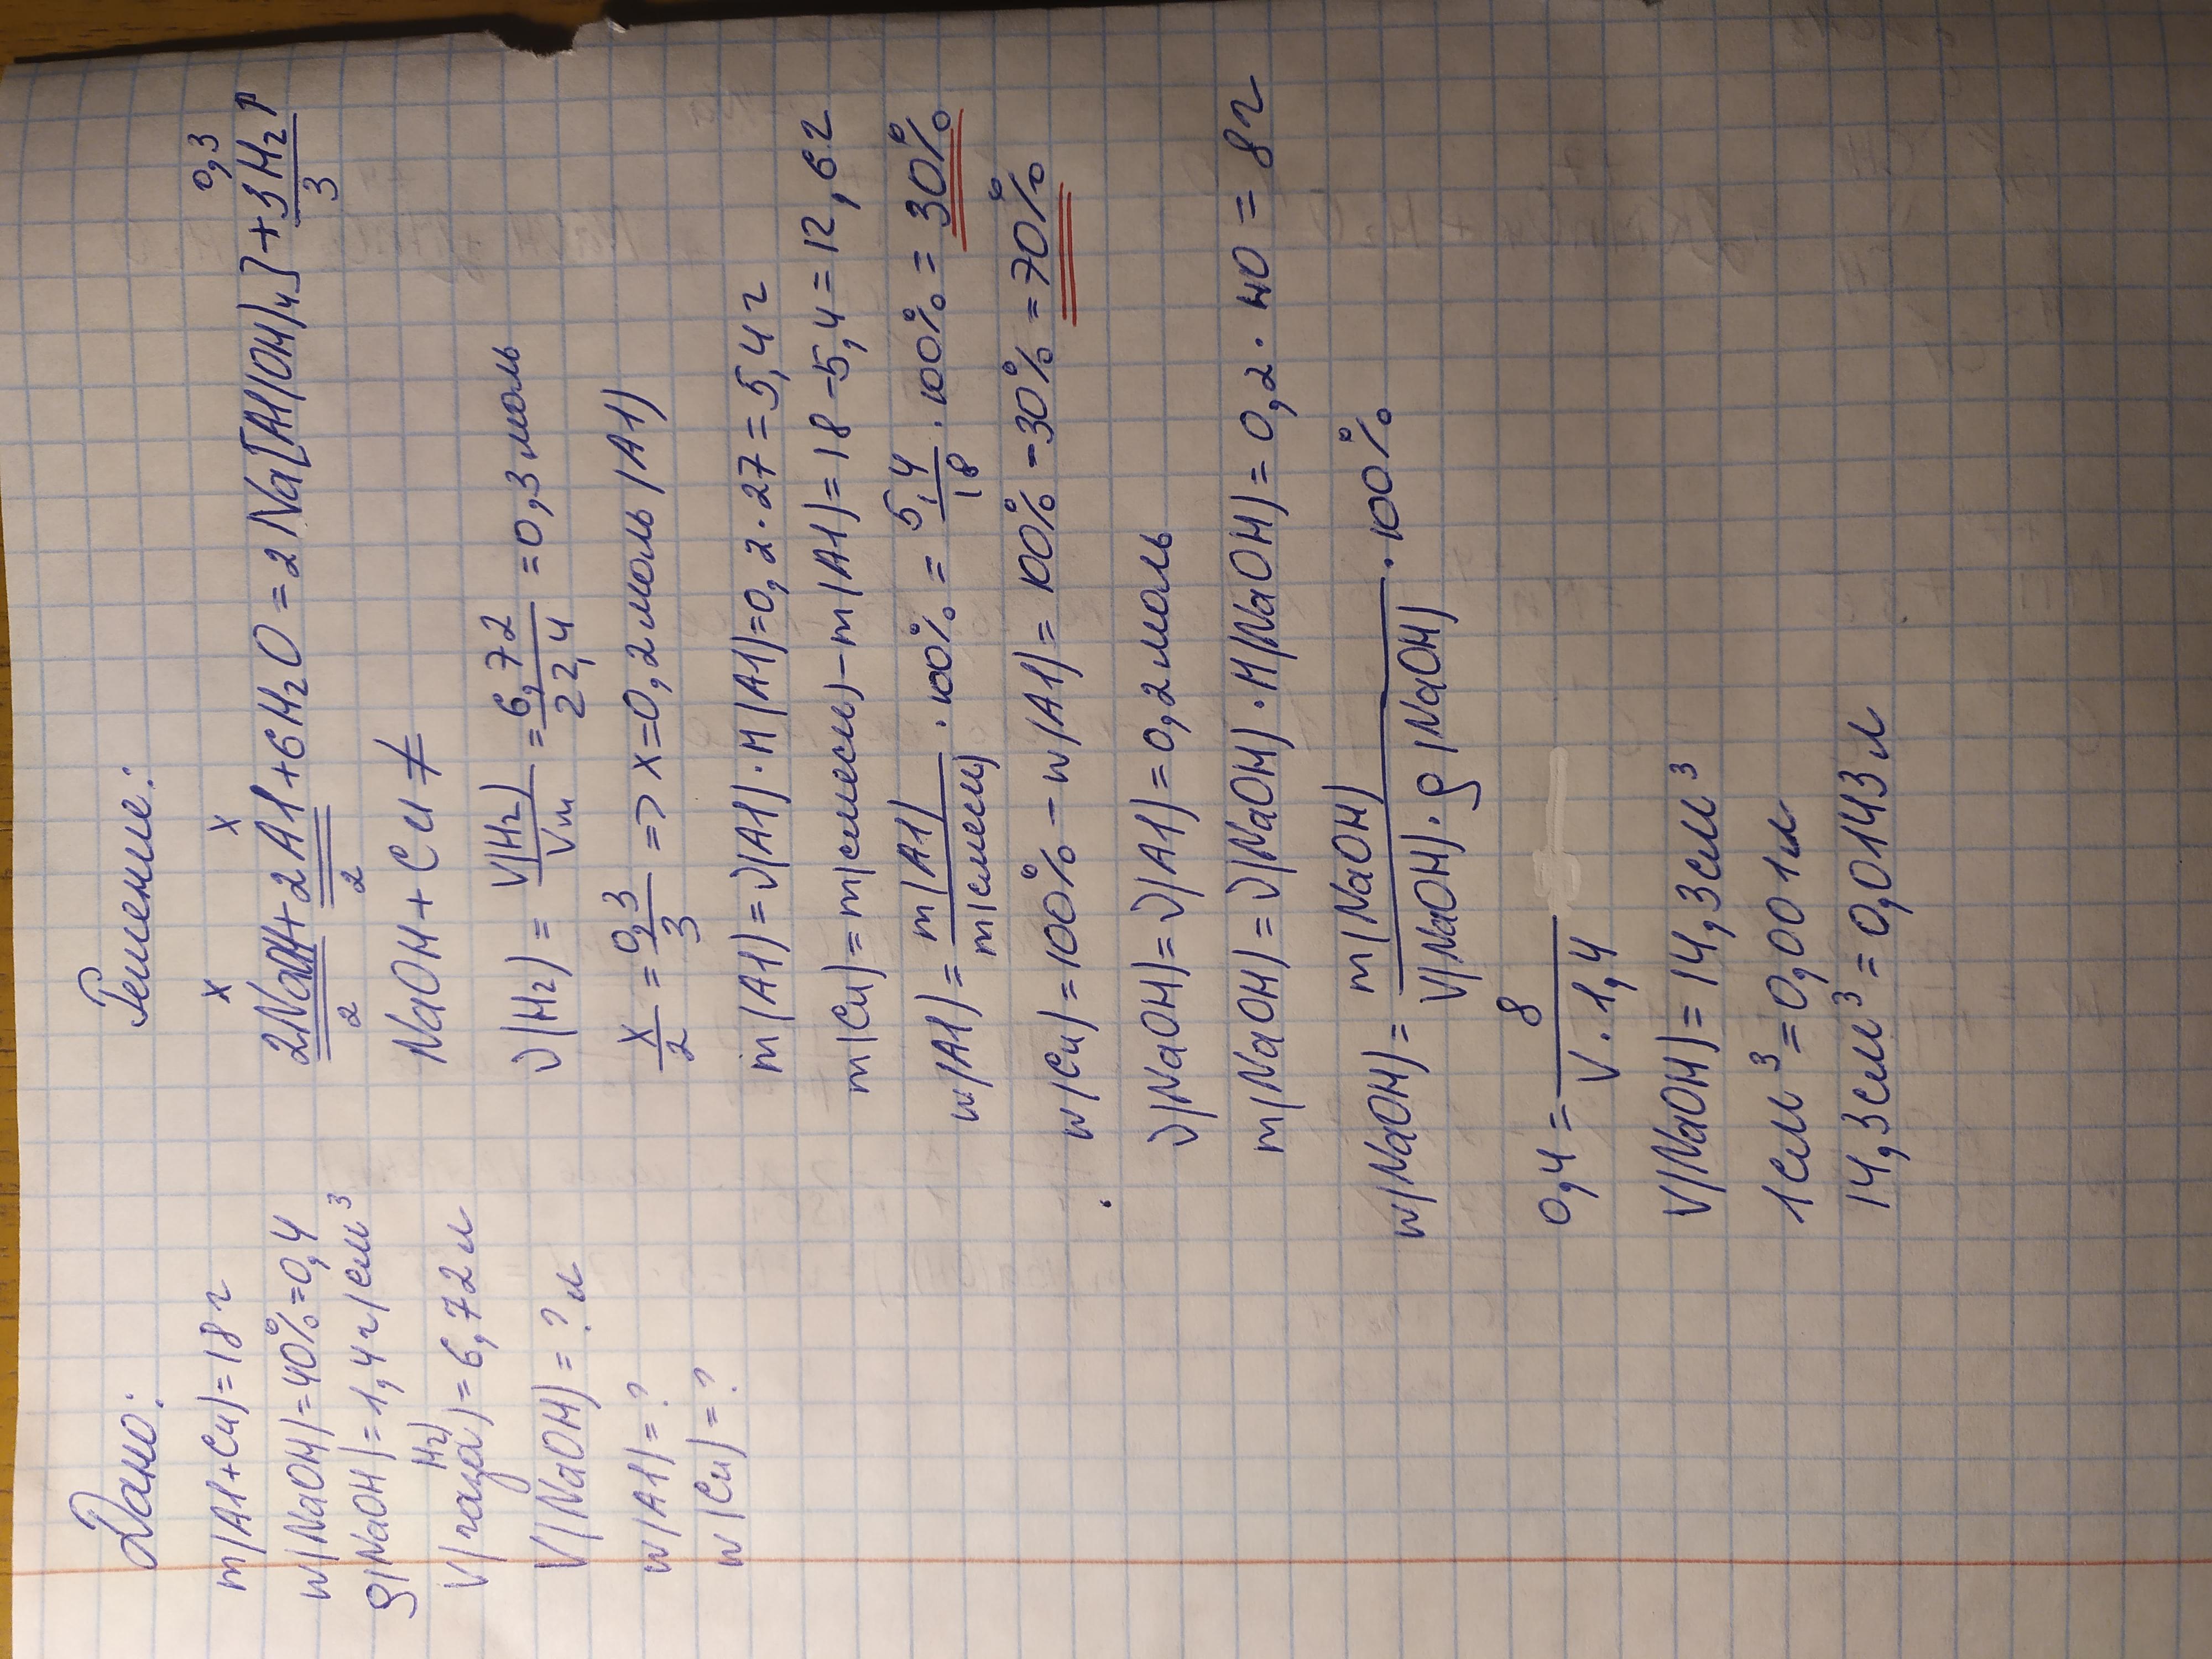 Дано:
m(Al+Cu)=18 г
w(NaOH)=40%=0,4
ρ(NaOH)=1,4 г/см³
V(газа)=6,72 л
H₂)
V(NaOH)=? л
w(Al)=?
w(Cu)=?
Решение:
x x 0,3
2NaOH+2Al+6H₂O=2Na[Al(OH)₄]+3H₂↑
2 2 3
NaOH+Cu≠
ν(H₂)=V(H₂)/Vm=6,72/22,4=0,3 моль
x/2=0,3/3=>x=0,2 моль (Al)
m(Al)=ν(Al)·M(Al)=0,2·27=5,4 г
m(Cu)=m(смеси)-m(Al)=18-5,4=12,6 г
w(Al)=m(Al)/m(смеси)·100%=5,4/18·100%=30%
w(Cu)=100%-w(Al)=100%-30%=70%
ν(NaOH)=ν(Al)=0,2 моль
m(NaOH)=ν(NaOH)·M(NaOH)=0,2·40=8 г
w(NaOH)=m(NaOH)/V(NaOH)·ρ(NaOH)·100%
0,4=8/V·1,4
V(NaOH)=14,3 см³
1 см³=0,001 л
14,3 см³=0,0143 л